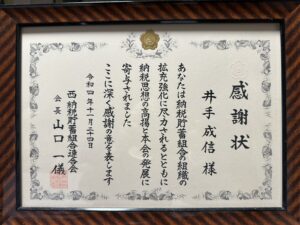 感謝状
井手成信様
あなたは納税貯蓄組合の組織の
拡充強化に尽力されるとともに
納税思想の高揚と本会の発展に
寄与されました
ここに深く感謝の意を表します
令和四年十一月二十四日
西納税貯蓄組合連合会
会長 山口 一儀